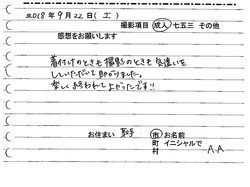 2018年9月22日(土)
撮影項目 成人 七五三 その他
感想をお願いします
着付けのときも撮影のときも気遣いを
していただいて助かりました。
楽しく終われてよかったです!!
お住まい 市 お名前
町 イニシャルで
村 A.A